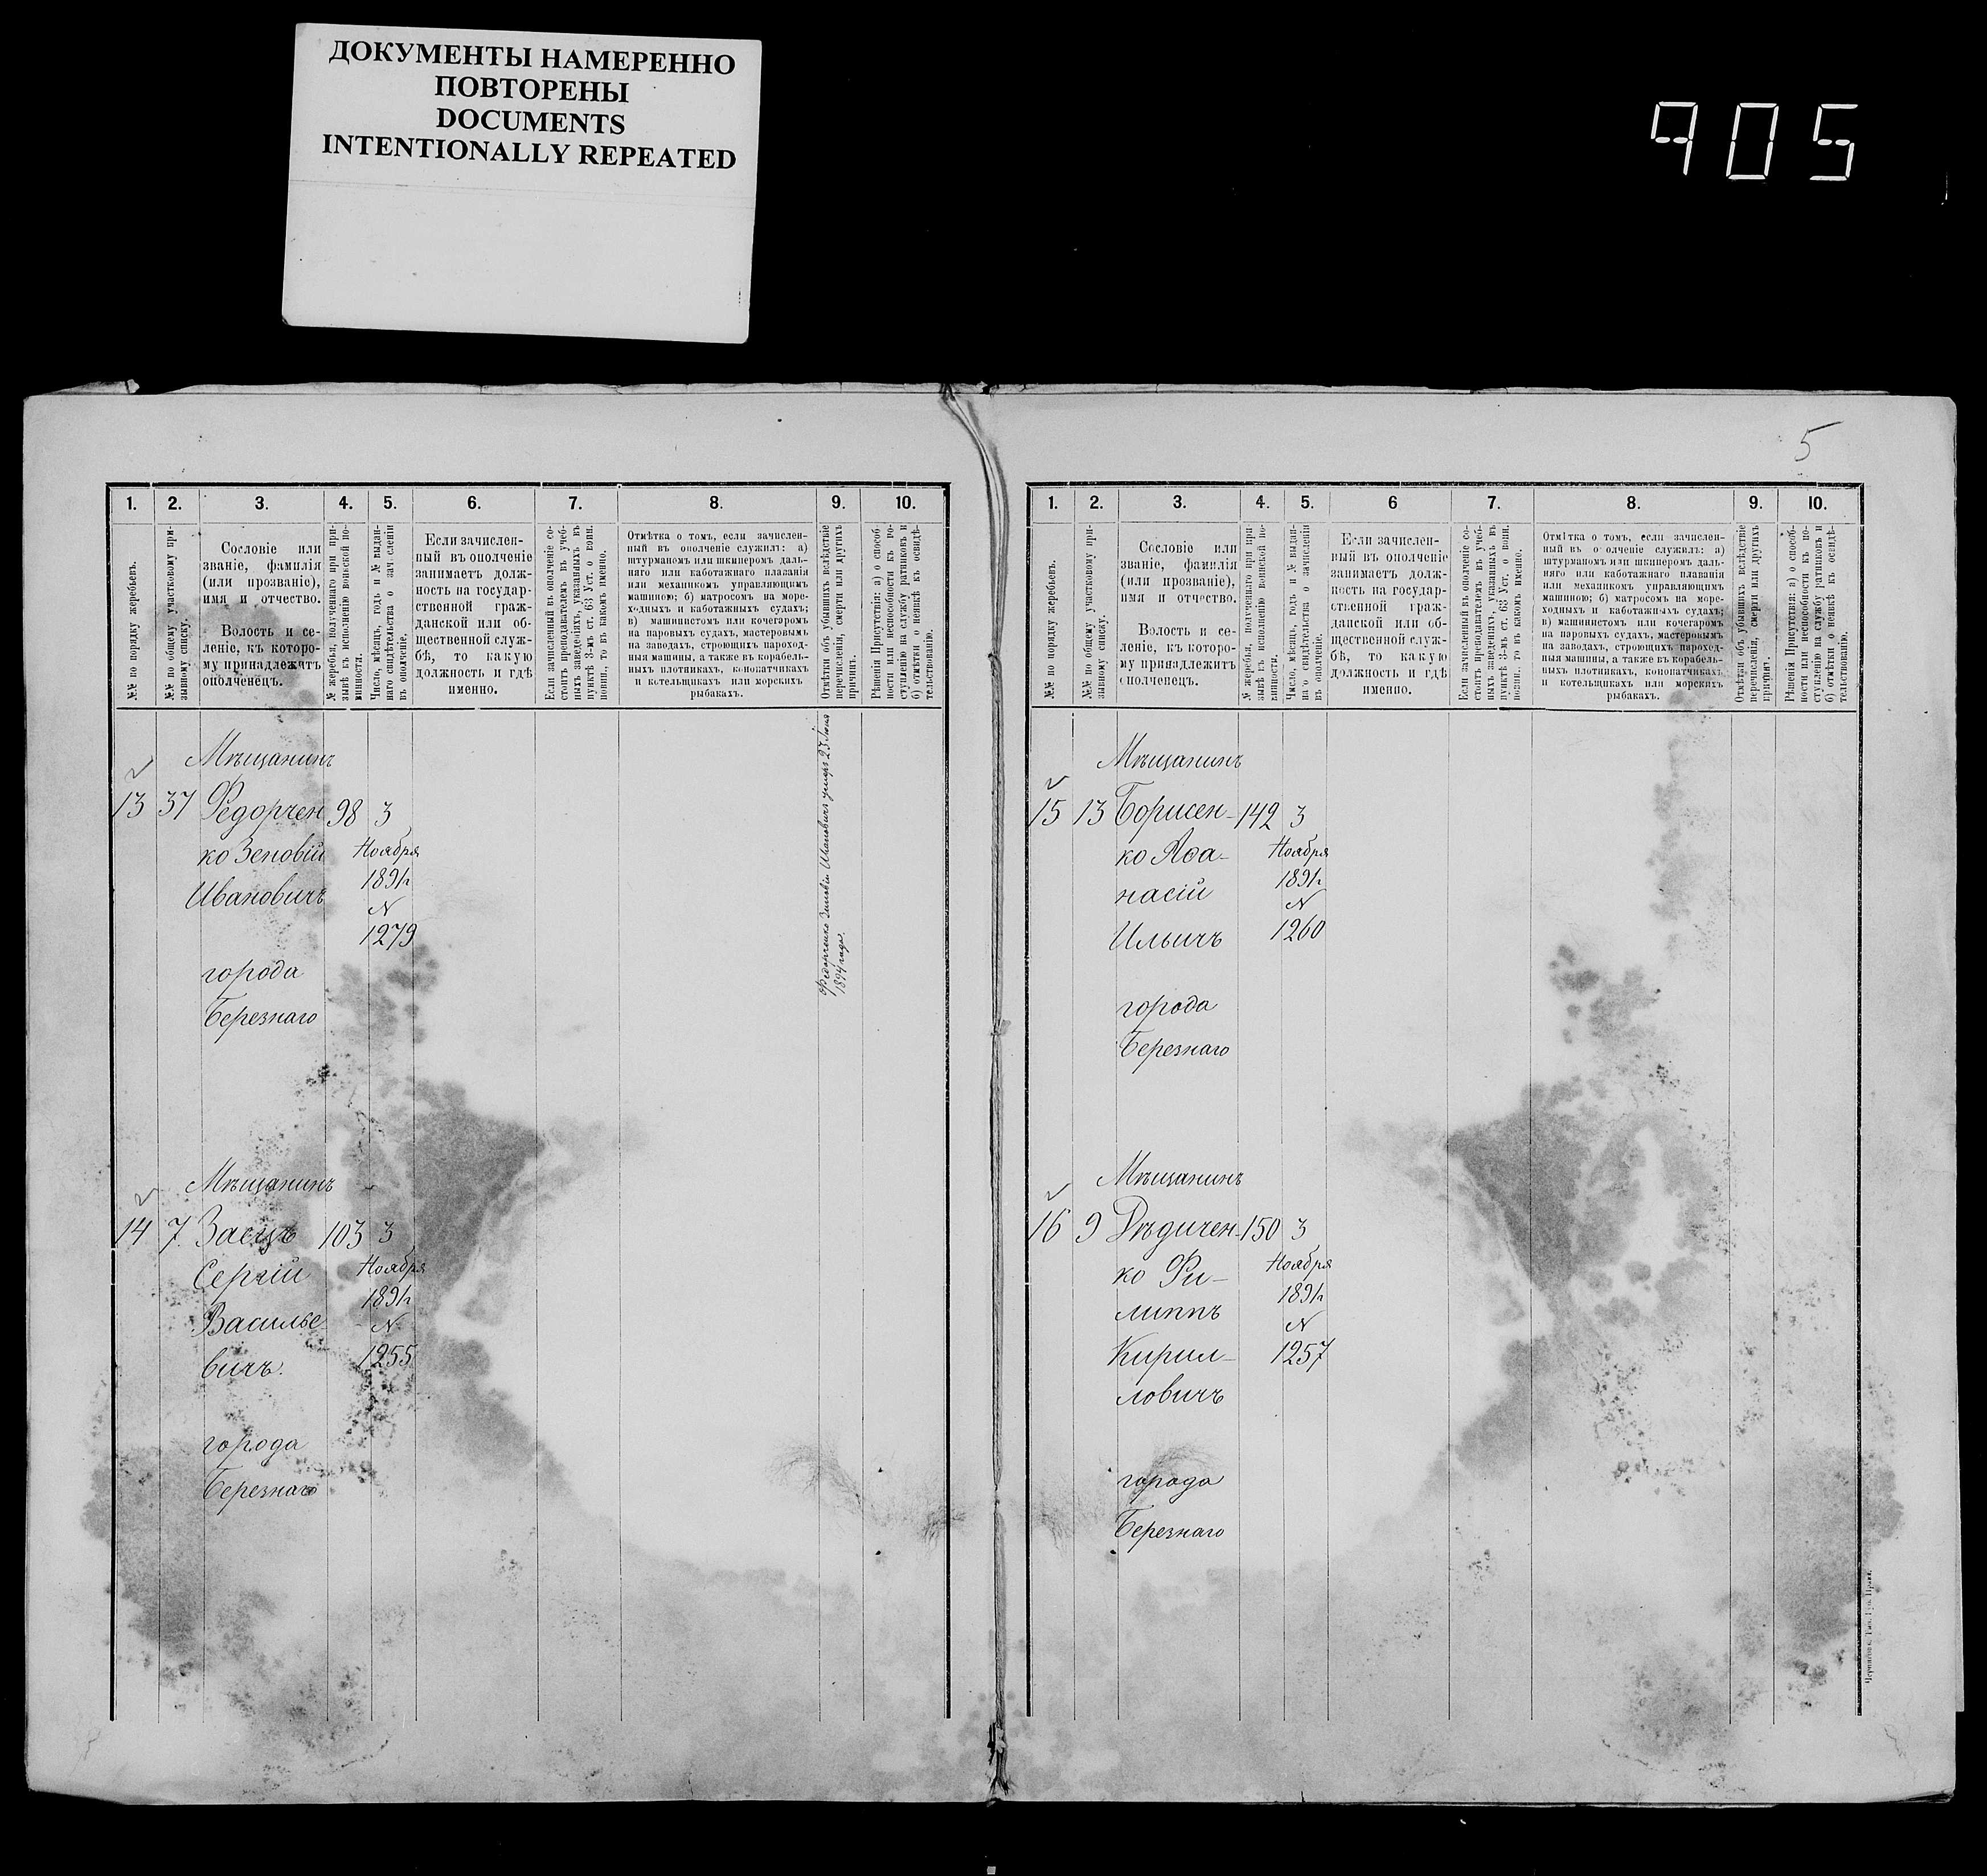 ДОКУМЕНТЫ НАМЕРЕННО
ПОВТОРЕНЫ
DOCUMENTS
INTENTIONALLY REPEATED
905
1.
2.
3.
4.
5.
6.
7.
8.
9.
10.
№№ по порядку жеребьевъ.
№№ по общему участковому при-
зывному списку.
Сословіе или
званіе, фамилія
(или прозваніе),
имя и отчество.
Волость и се-
леніе, къ которо-
му принадлежитъ
ополченецъ.
№ жеребья, полученнаго при при-
зывѣ къ исполненію воинской по-
винности.
Число, мѣсяцъ, годъ и № выдан-
наго свидѣтельства о зачисленіи
въ ополченіе.
Если зачислен-
ный въ ополченіе
занимаетъ долж-
ность на государ-
ственной граж-
данской или об-
щественной служ-
бѣ, то какую
должность и гдѣ
именно.
Если зачисленный въ ополченіе со-
стоитъ преподавателемъ въ учеб-
ныхъ заведеніяхъ, указанныхъ въ
пунктѣ 3-мъ ст. 63 Уст. о воин.
повин., то въ какомъ именно.
Отмѣтка о томъ, если зачислен-
ный въ ополченіе служилъ: а)
штурманомъ или шкиперомъ даль-
няго или каботажнаго плаванія
или механикомъ управляющимъ
машиною; б) матросомъ на море-
ходныхъ и каботажныхъ судахъ;
в) машинистомъ или кочегаромъ
на паровыхъ судахъ, мастеровымъ
на заводахъ, строющихъ пароход-
ныя машины, а также въ корабель-
ныхъ плотникахъ, конопатчикахъ
и котельщикахъ или морскихъ
рыбакахъ.
Отмѣтки объ убывшихъ вслѣдствіе
перечисленія, смерти или другихъ
причинъ.
Рѣшенія Присутствія: а) о способ-
ности или неспособности къ по-
ступленію на службу ратниковъ и
б) отмѣтки о неявкѣ къ освидѣ-
тельствованію.
Мѣщанинъ
13 37 Федорчен 98 3
ко Зеновій Ноября
Ивановичъ 1891г
N
1279
города
Березнаго
Федорченко Зиновій Ивановичъ умеръ 23 Іюня
1894 года.
Мѣщанинъ
14 7 Заецъ 103 3
Сергій Ноября
1891г
Василье- N
вичъ. 1255
города
Березнаго
5
1.
2.
3.
4.
5.
6
7.
8.
9.
10.
№№ по порядку жеребьевъ.
№№ по общему участковому при-
зывному списку.
Сословіе или
званіе, фамилія
(или прозваніе),
имя и отчество.
Волость и се-
леніе, къ которо-
му принадлежитъ
ополченецъ.
№ жеребья, полученнаго при при-
зывѣ къ исполненію воинской по-
винности.
Число, мѣсяцъ, годъ и № выдан-
наго свидѣтельства о зачисленіи
въ ополченіе.
Если зачислен-
ный въ ополченіе
занимаетъ долж-
ность на государ-
ственной граж-
данской или об-
щественной служ-
бѣ, то какую
должность и гдѣ
именно.
Если зачисленный въ ополченіе со-
стоитъ преподавателемъ въ учеб-
ныхъ заведеніяхъ, указанныхъ въ
пунктѣ 3-мъ ст. 63 Уст. о воин.
повин., то въ какомъ именно.
Отмѣтка о томъ, если зачислен-
ный въ ополченіе служилъ: а)
штурманомъ или шкиперомъ даль-
няго или каботажнаго плаванія
или механикомъ управляющимъ
машиною; б) матросомъ на море-
ходныхъ и каботажныхъ судахъ;
в) машинистомъ или кочегаромъ
на паровыхъ судахъ, мастеровымъ
на заводахъ, строющихъ пароход-
ныя машины, а также въ корабель-
ныхъ плотникахъ, конопатчикахъ
и котельщикахъ или морскихъ
рыбакахъ.
Отмѣтки объ убывшихъ вслѣдствіе
перечисленія, смерти или другихъ
причинъ.
Рѣшенія Присутствія: а) о способ-
ности или неспособности къ по-
ступленію на службу ратниковъ и
б) отмѣтки о неявкѣ къ освидѣ-
тельствованію.
Мѣщанинъ
15 13 Борисен- 142 3
ко Аѳа- Ноября
насій 1891г
N
Ильичъ 1260
города
Березнаго
Мѣщанинъ
16 9 Дѣдичен- 150 3
ко Фи- Ноября
липпъ 1891г
N
Кирил- 1257
ловичъ
города
Березнаго
Черниговъ. Тип. Губ. Правл.